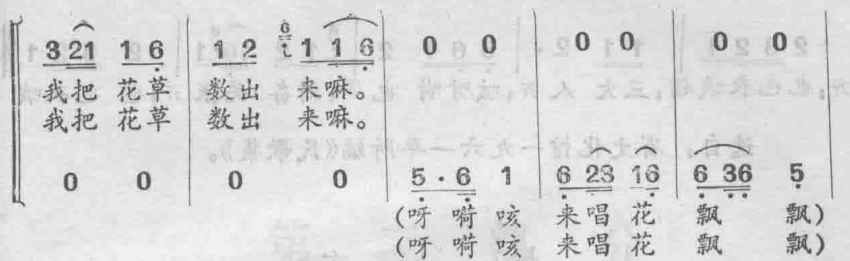 3 21 1 6 1 2 6 i 1 1 6 0 0 0 0 0 0
我把 花草 数出 来嘛。
我把 花草 数出 来嘛。
0 0 0 0 5·6 1 6 23 16 6 36 5
(呀 嗬 咳 来唱 花 飘 飘)
(呀 嗬 咳 来唱 花 飘 飘)